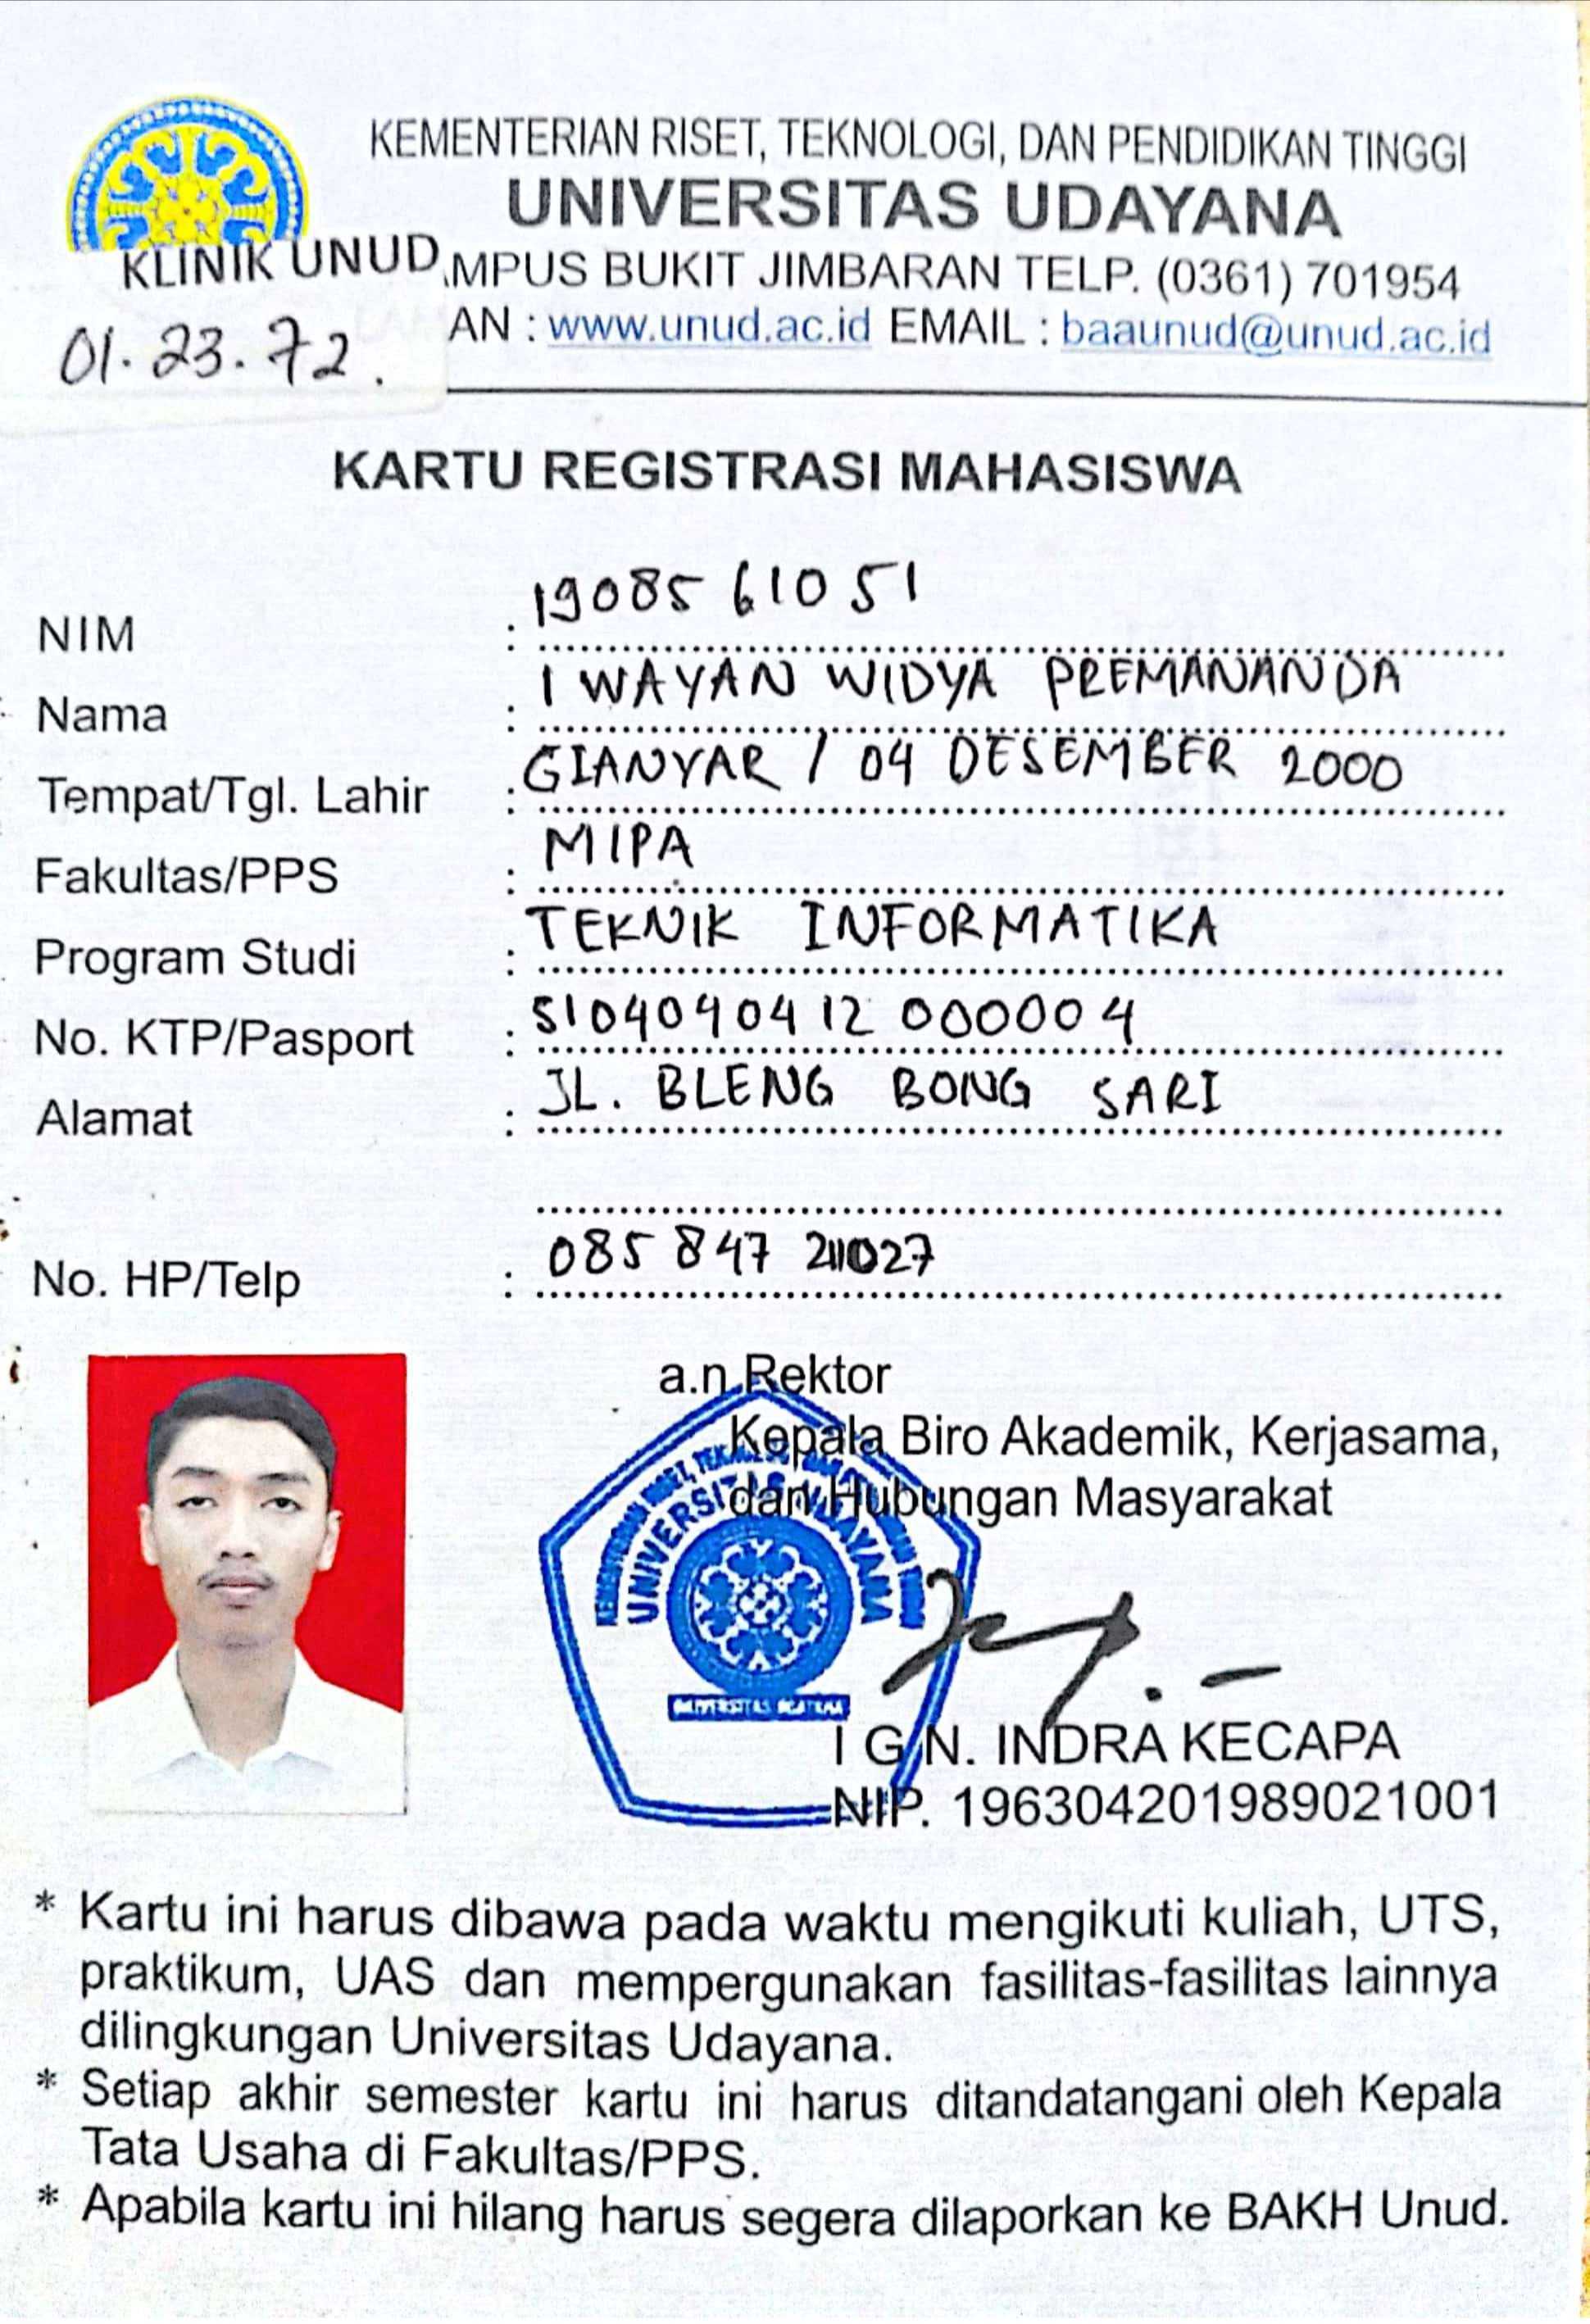 KEMENTERIAN RISET, TEKNOLOGI, DAN PENDIDIKAN TINGGI
UNIVERSITAS UDAYANA
KLINIK UNUD MPUS BUKIT JIMBARAN TELP. (0361) 701954
01.23.72. AN : www.unud.ac.id EMAIL : baaunud@unud.ac.id
KARTU REGISTRASI MAHASISWA
NIM : 1908561051
Nama : I WAYAN WIDYA PREMANANDA
Tempat/Tgl. Lahir : GIANYAR / 04 DESEMBER 2000
Fakultas/PPS : MIPA
Program Studi : TEKNIK INFORMATIKA
No. KTP/Pasport : 5104040412000004
Alamat : JL. BLENG BONG SARI
No. HP/Telp : 085 847 211027
a.n Rektor
Kepala Biro Akademik, Kerjasama,
dan Hubungan Masyarakat
UNIVERSITAS UDAYANA
I G.N. INDRA KECAPA
NIP. 196304201989021001
* Kartu ini harus dibawa pada waktu mengikuti kuliah, UTS,
praktikum, UAS dan mempergunakan fasilitas-fasilitas lainnya
dilingkungan Universitas Udayana.
* Setiap akhir semester kartu ini harus ditandatangani oleh Kepala
Tata Usaha di Fakultas/PPS.
* Apabila kartu ini hilang harus segera dilaporkan ke BAKH Unud.